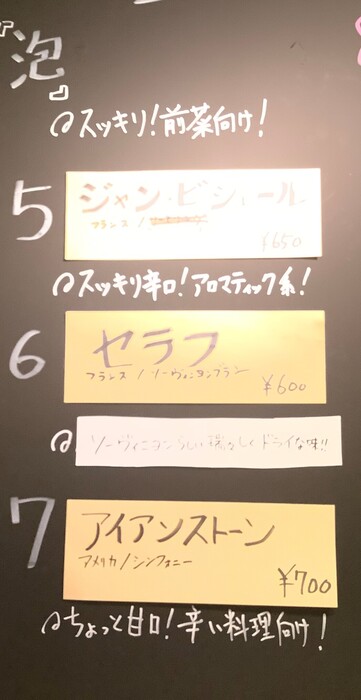 『泡』
スッキリ!前菜向け!
5
ジャン・ビシェール
フランス /
¥650
スッキリ辛口!アロマティック系!
6
セラフ
フランス / ソーヴィニヨンブラン
¥600
ソーヴィニヨンらしい 瑞々しくドライな味!!
7
アイアンストーン
アメリカ / シンフォニー
¥700
ちょっと甘口!辛い料理向け!